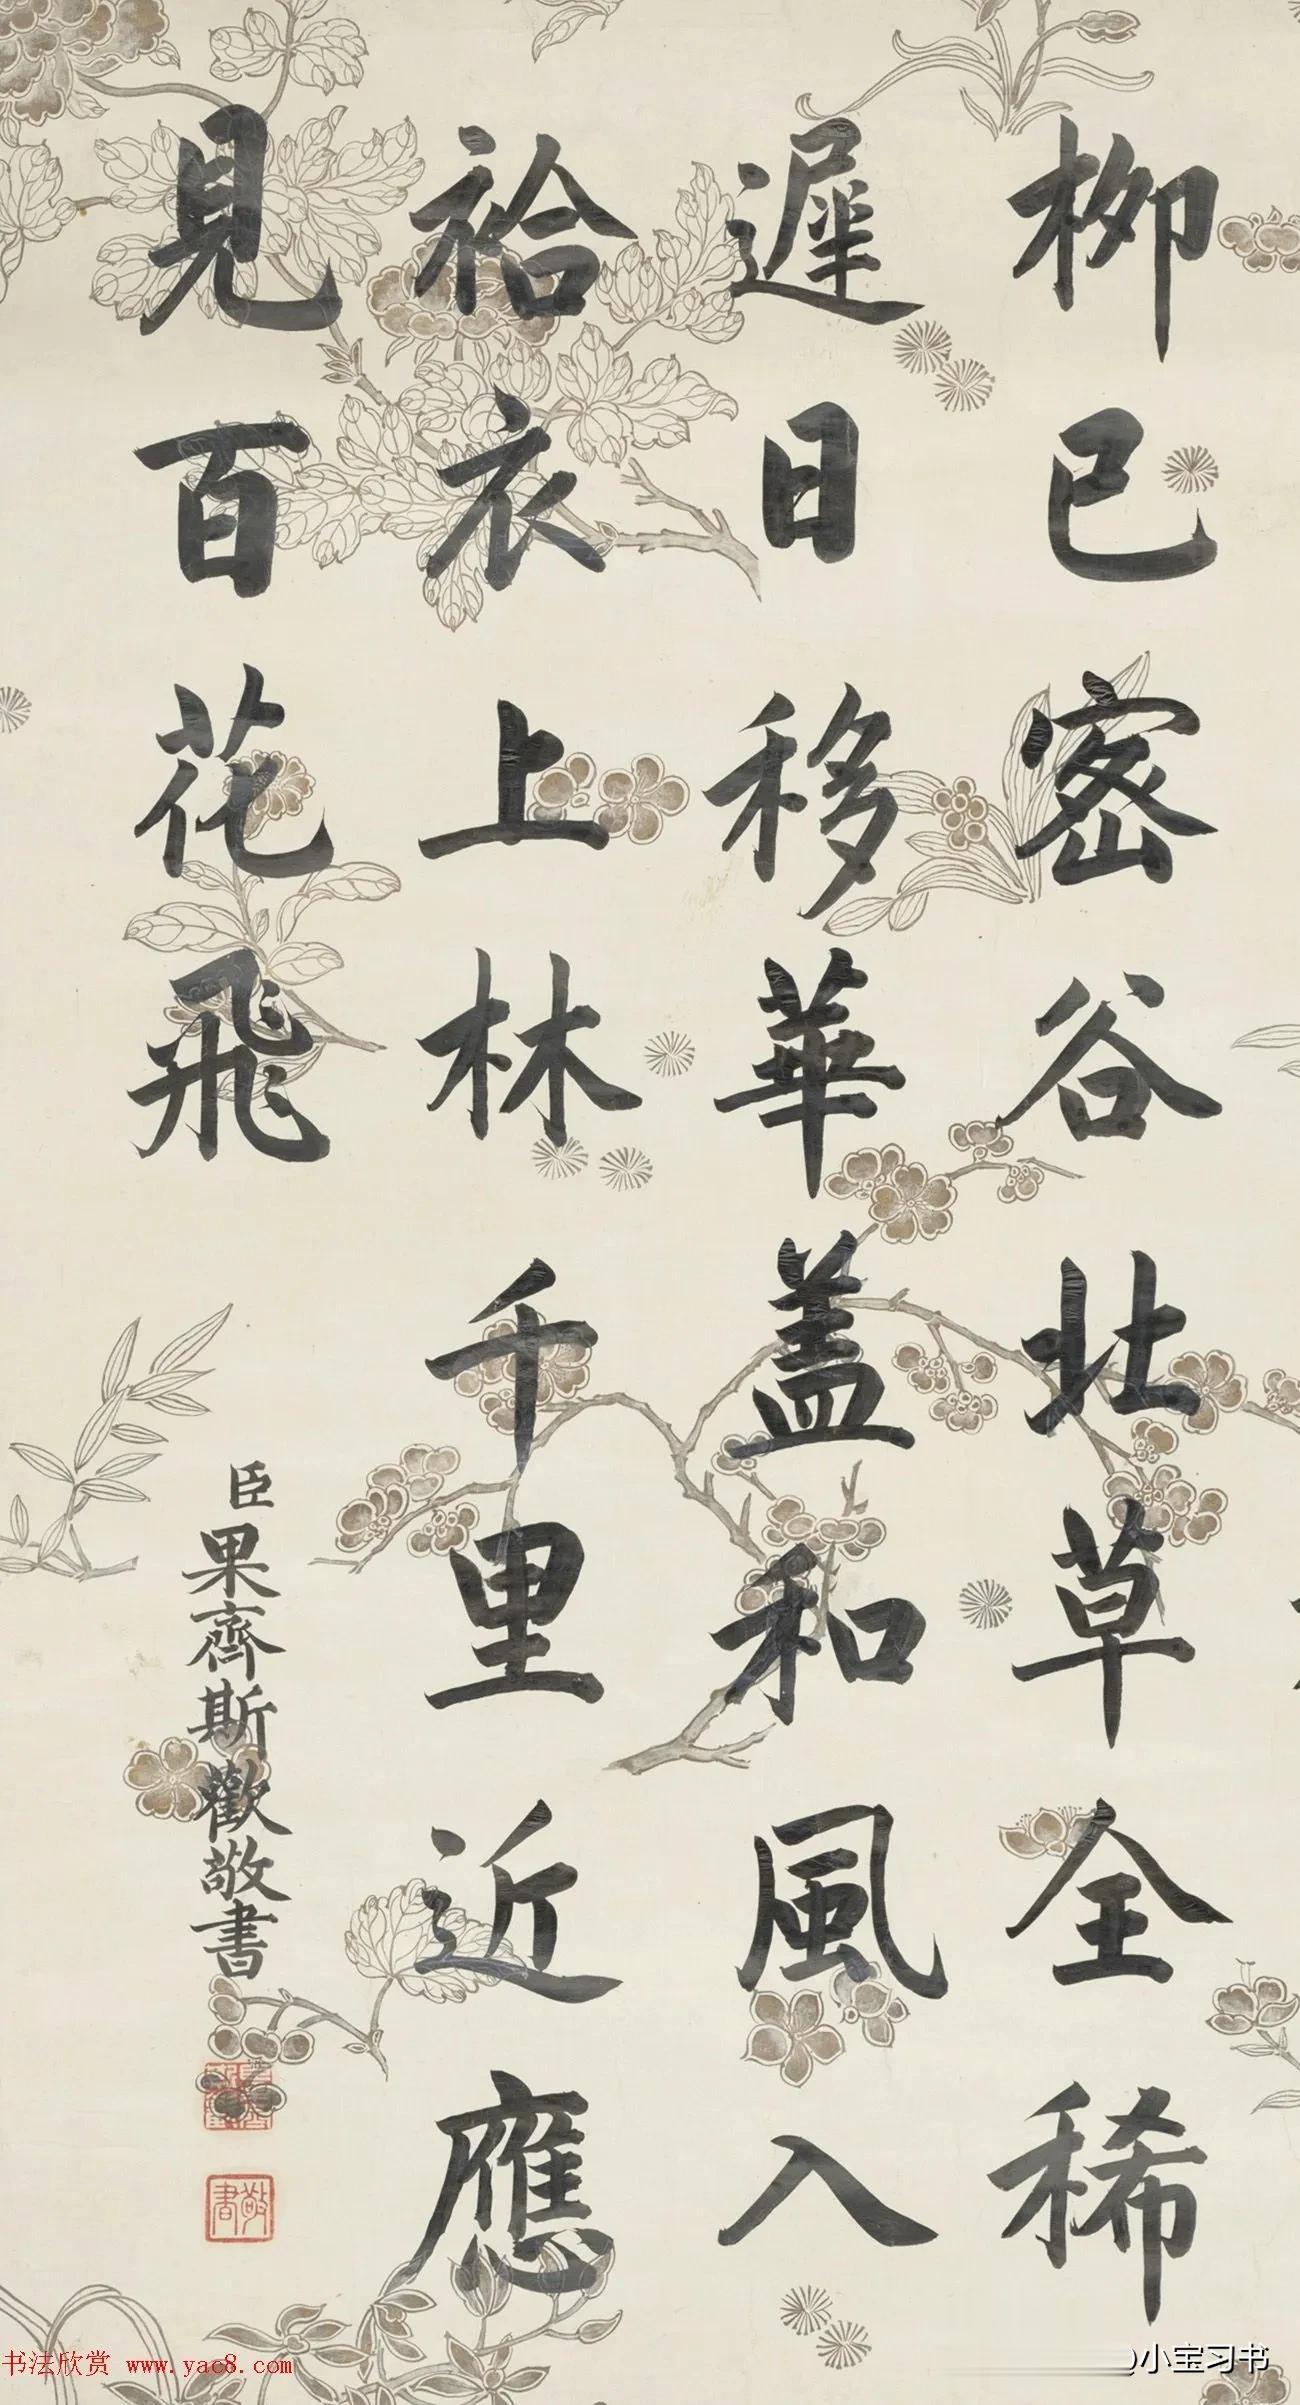 柳已密谷北草全稀
遲日移華蓋和風入
袷衣上林千里近應
見百花飛
臣果齊斯歡敬書
敬書
书法欣赏 www.yac8.com
小宝习书